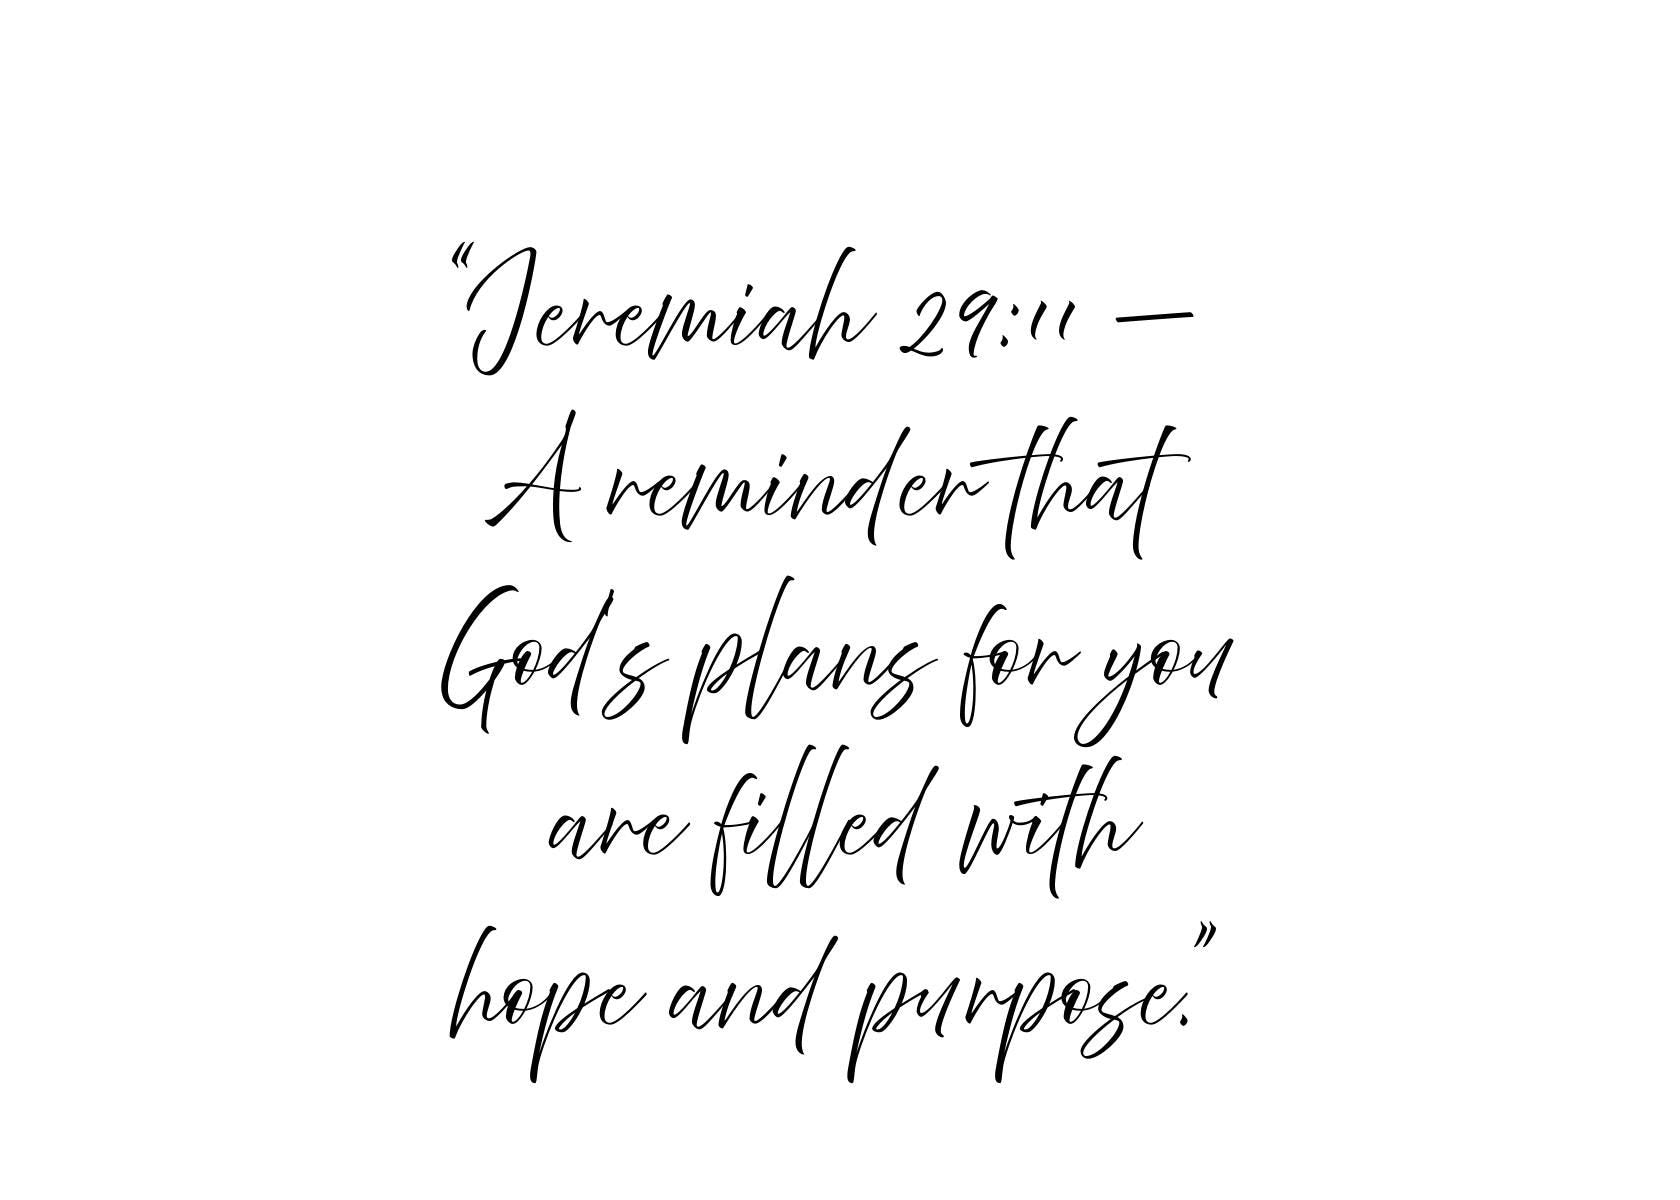 “Jeremiah 29:11 –
A reminder that
God's plans for you
are filled with
hope and purpose.”